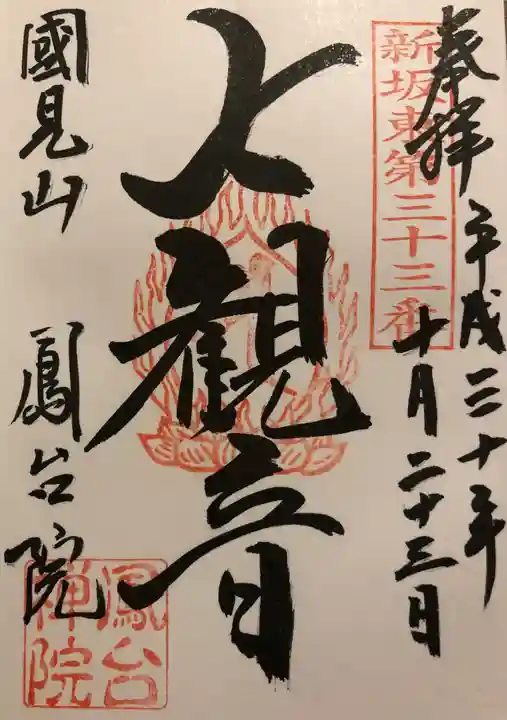 奉拝
新坂東第三十三番
平成三十年
十月二十三日
大観音
國見山 鳳台院
鳳台
禅院